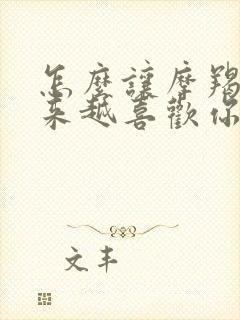 怎麼讓摩羯
來越喜歡你
文丰